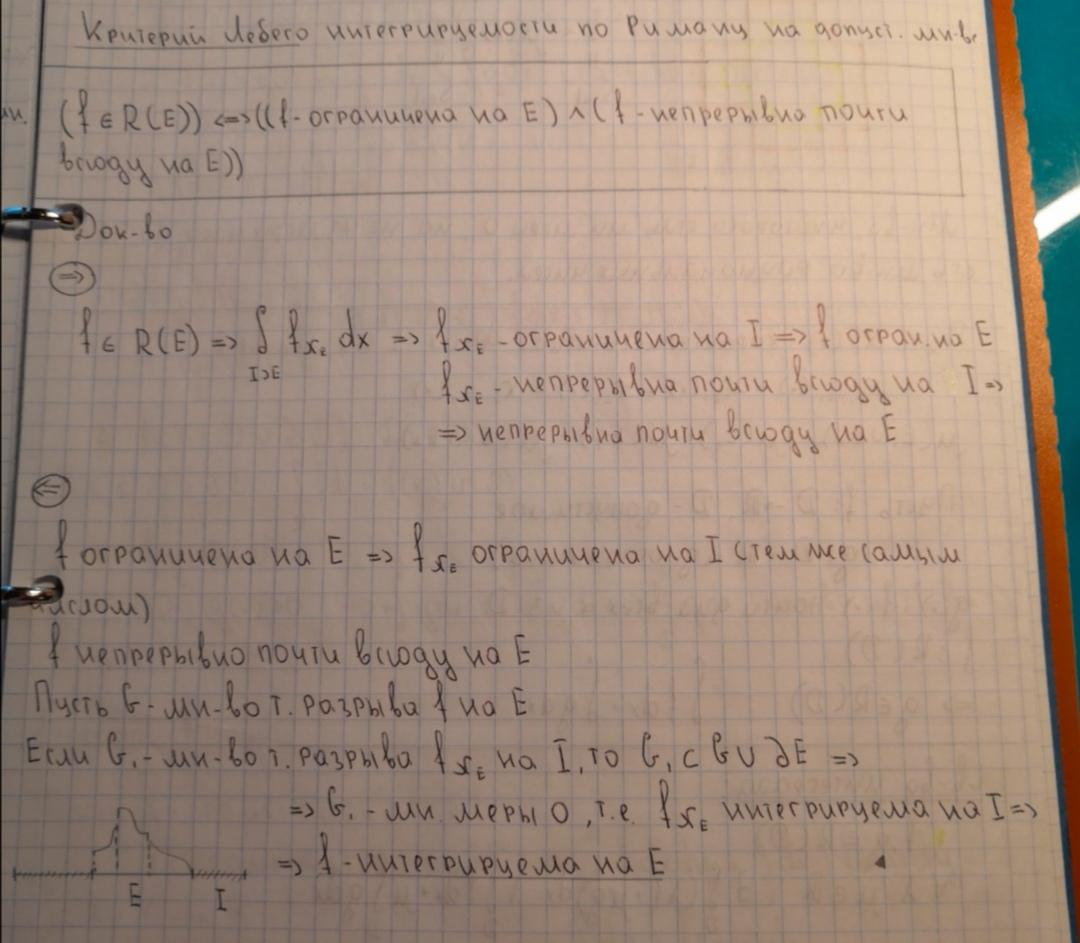 Критерий Лебега интегрируемости по Риману на допуст. мн-ве
(f ∈ R(E)) <=> ((f - ограничена на E) ∧ (f - непрерывна почти
всюду на E))
Док-во
⇒
f ∈ R(E) => ∫ f χ_E dx => f χ_E - ограничена на I => f огран. на E
I⊃E
f χ_E - непрерывна почти всюду на I =>
=> непрерывна почти всюду на E
⇐
f ограничена на E => f χ_E ограничена на I (тем же самым
числом)
f непрерывно почти всюду на E
Пусть G - мн-во т. разрыва f на E
Если G₁ - мн-во т. разрыва f χ_E на I, то G₁ ⊂ G ∪ ∂E =>
=> G₁ - мн. меры 0, т.е. f χ_E интегрируема на I =>
=> f - интегрируема на E
E I